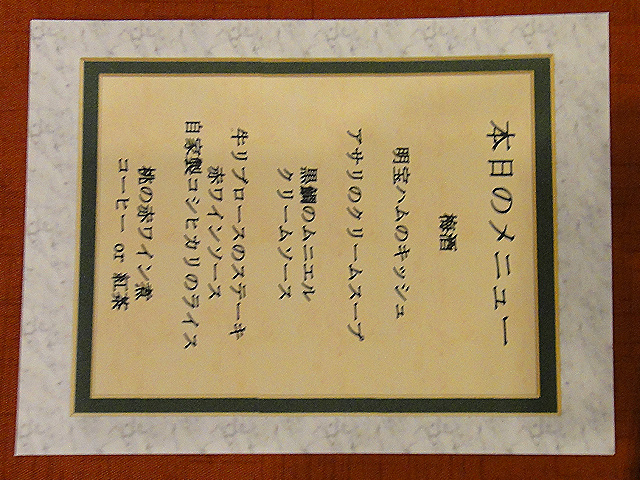 本日のメニュー
梅酒
明宝ハムのキッシュ
アサリのクリームスープ
黒鯛のムニエル
クリームソース
牛リブロースのステーキ
赤ワインソース
自家製コシヒカリのライス
桃の赤ワイン煮
コーヒー or 紅茶